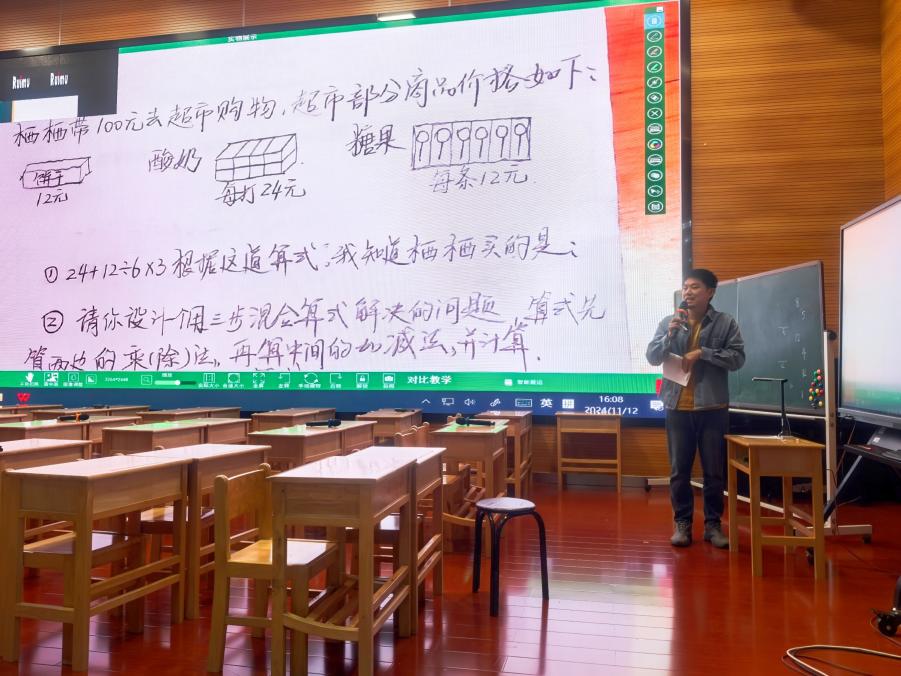 实物展示
Ruimu Ruimu
栖栖带100元去超市购物，超市部分商品价格如下：
饼干
12元
酸奶
每打24元
糖果
每条12元
① 24+12÷6×3 根据这道算式，我知道栖栖买的是：
② 请你设计一个用三步混合算式解决的问题，算式先
算两边的乘(除)法，再算中间的加减法，并计算.
对比教学
智能截边
英
16:08
2024/11/12